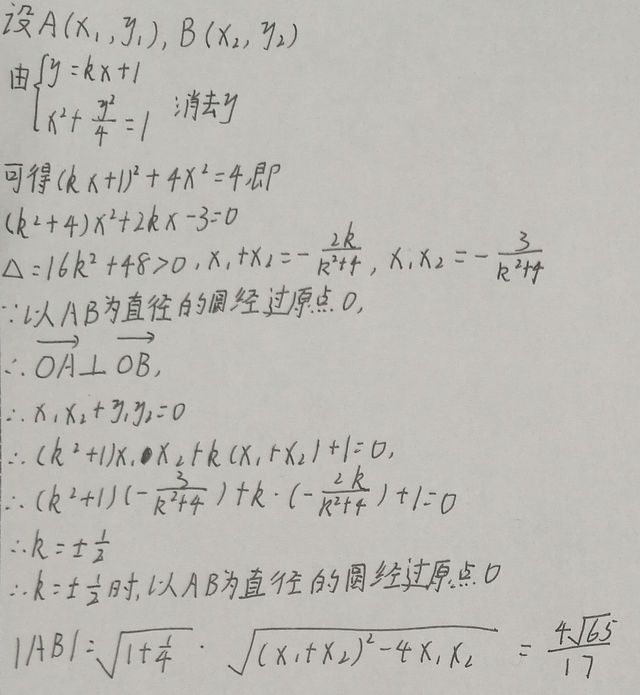 设A(x₁,y₁),B(x₂,y₂)
由{y=kx+1
x²+y²/4=1 消去y
可得(kx+1)²+4x²=4,即
(k²+4)x²+2kx-3=0
△=16k²+48>0,x₁+x₂=-2k/(k²+4),x₁x₂=-3/(k²+4)
∵以AB为直径的圆经过原点O,
∴OA⊥OB,
∴x₁x₂+y₁y₂=0
∴(k²+1)x₁x₂+k(x₁+x₂)+1=0,
∴(k²+1)(-3/(k²+4))+k·(-2k/(k²+4))+1=0
∴k=±1/2
∴k=±1/2时,以AB为直径的圆经过原点O
|AB|=√(1+1/4)·√((x₁+x₂)²-4x₁x₂)=4√65/17